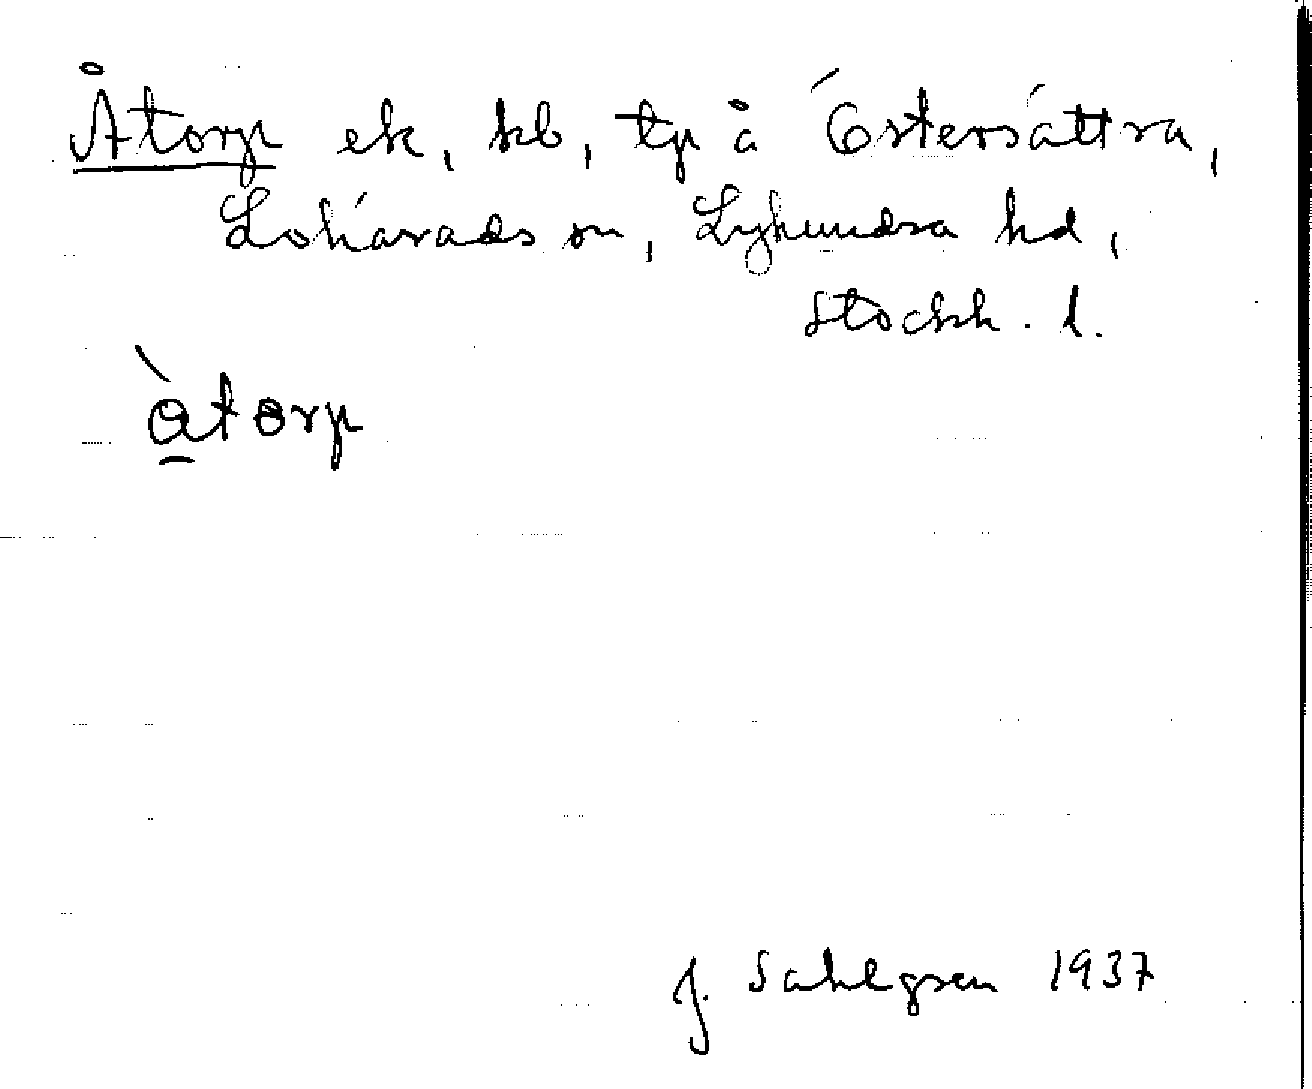 Åtorp ek, kb, tp å Östersättra,
Lohärads sn, Lyhundra hd,
Stockh. l.
åtorp
J. Sahlgren 1937